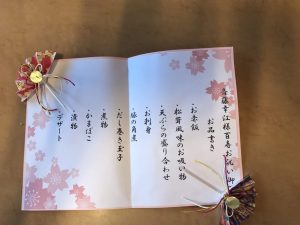 江様百寿お祝い
お品書き
・お赤飯
・松茸風味のお吸い物
・天ぷらの盛り合わせ
・お刺身
・豚の角煮
・だし巻き玉子
・煮物
・かまぼこ
・漬物
・デザート